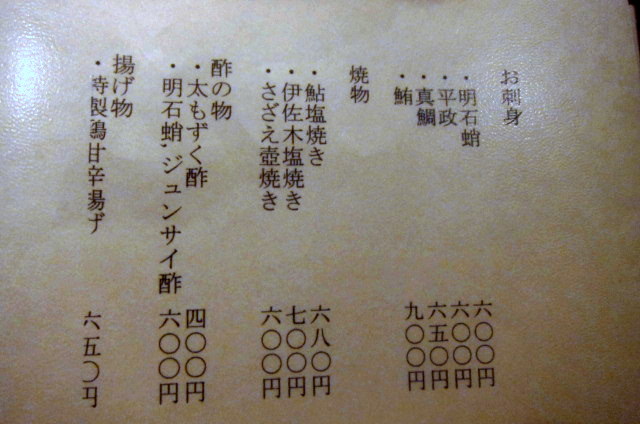 お刺身
・明石蛸 六〇〇円
・平政 六〇〇円
・真鯛 六五〇円
・鮪 九〇〇円
焼物
・鮎塩焼き 六八〇円
・伊佐木塩焼き 七〇〇円
・さざえ壺焼き 六〇〇円
酢の物
・太もずく酢 四〇〇円
・明石蛸、ジュンサイ酢 六〇〇円
揚げ物
・特製鶏甘辛揚げ 六五〇円